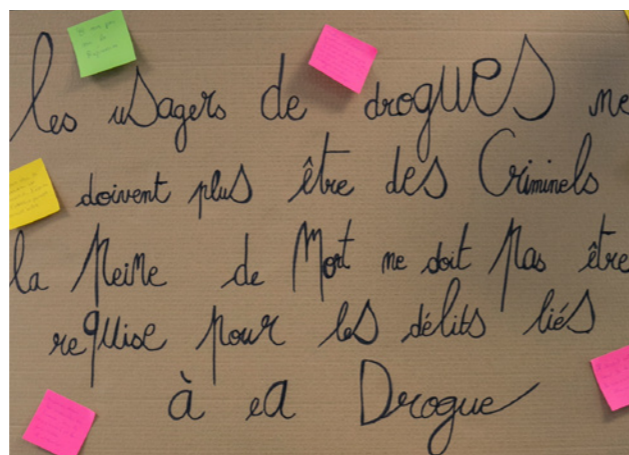 les usagers de drogues ne
doivent plus être des Criminels
la peine de Mort ne doit pas être
requise pour les délits liés
à la Drogue